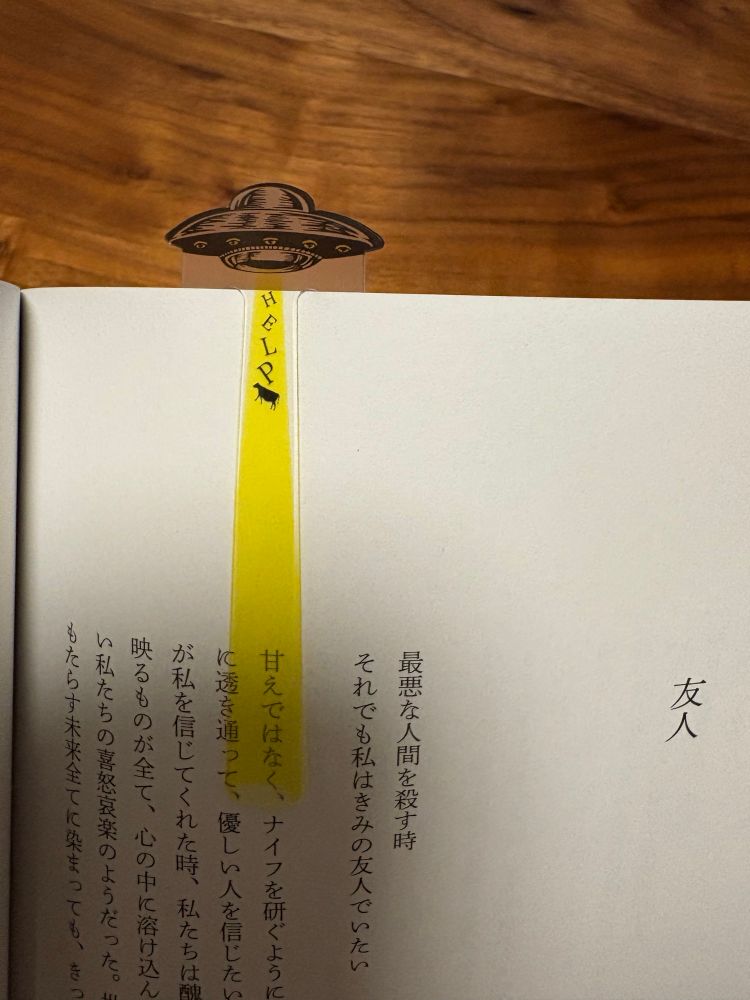 HELP
友人
最悪な人間を殺す時
それでも私はきみの友人でいたい
甘えではなく、ナイフを研ぐように
に透き通って、優しい人を信じたい
が私を信じてくれた時、私たちは醜
映るものが全て、心の中に溶け込ん
い私たちの喜怒哀楽のようだった。
もたらす未来全てに染まっても、きっ